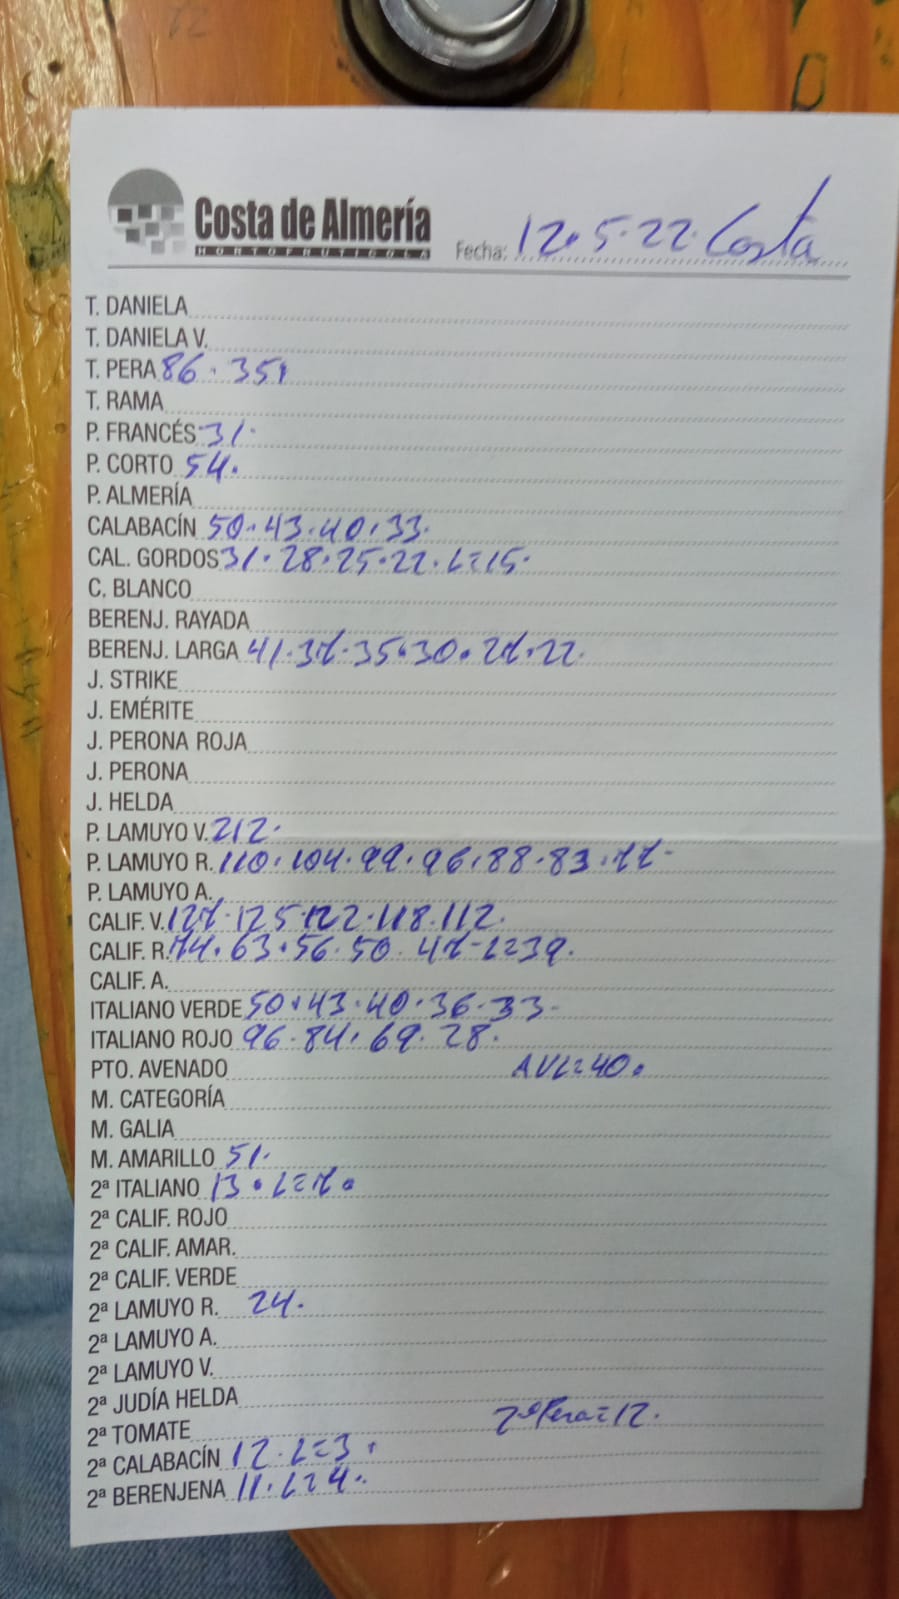 Costa de Almería
HORTOFRUTICOLA
Fecha: 12.5.22. Costa
T. DANIELA
T. DANIELA V.
T. PERA 86.35.
T. RAMA
P. FRANCÉS 31.
P. CORTO 54.
P. ALMERÍA
CALABACÍN 50.43.40.33.
CAL. GORDOS 31.28.25.22.L=15.
C. BLANCO
BERENJ. RAYADA
BERENJ. LARGA 41.37.35.30.27.22.
J. STRIKE
J. EMÉRITE
J. PERONA ROJA
J. PERONA
J. HELDA
P. LAMUYO V. 212.
P. LAMUYO R. 110.104.99.96.88.83.77-
P. LAMUYO A.
CALIF. V. 127.125.122.118.112.
CALIF. R. 74.63.56.50.47-L=39.
CALIF. A.
ITALIANO VERDE 50.43.40.36.33-
ITALIANO ROJO 96.84.69.28.
PTO. AVENADO AVL=40.
M. CATEGORÍA
M. GALIA
M. AMARILLO 51.
2ª ITALIANO 13.L=7.
2ª CALIF. ROJO
2ª CALIF. AMAR.
2ª CALIF. VERDE
2ª LAMUYO R. 24.
2ª LAMUYO A.
2ª LAMUYO V.
2ª JUDÍA HELDA
2ª TOMATE 2ª Pera=12.
2ª CALABACÍN 12.L=3.
2ª BERENJENA 11.L=4.